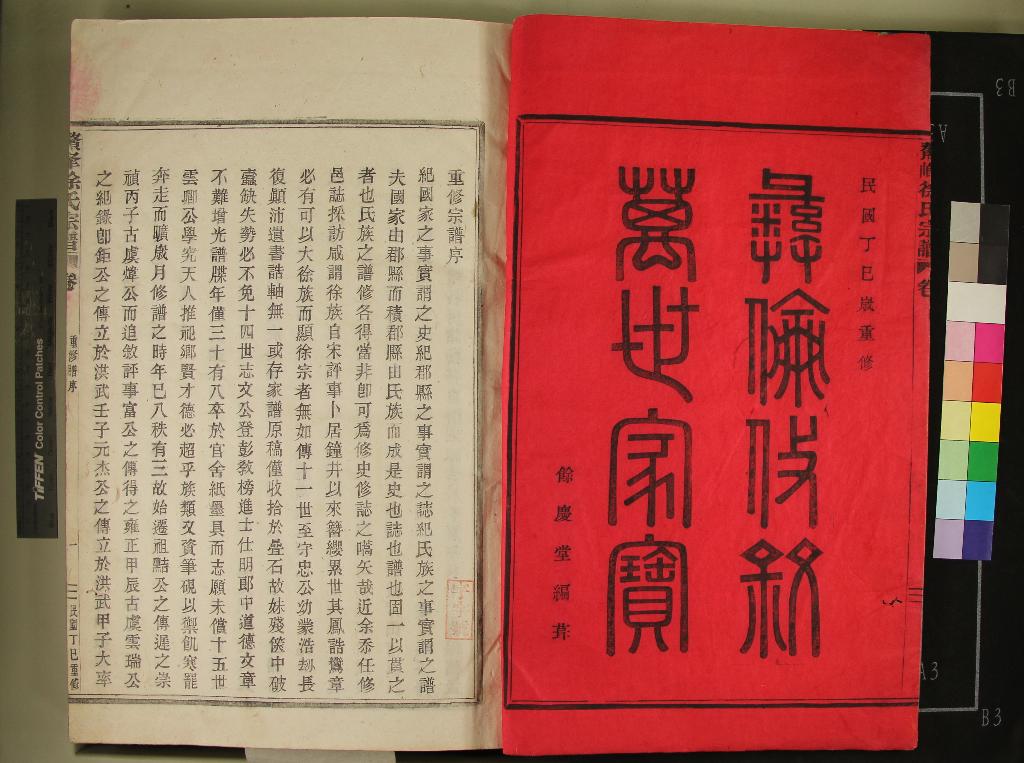 民國丁巳歲重修
彝倫攸敘
萬世家寶
餘慶堂編葺
徐氏宗譜
卷
重修宗譜序
紀國家之事實謂之史紀郡縣之事實謂之誌紀氏族之事實謂之譜
夫國家由郡縣而積郡縣由氏族而成是史也誌也譜也固一以貫之
者也氏族之譜修各得當非卽可爲修史修誌之嚆矢哉近余忝任修
邑誌探訪咸謂徐族自宋評事卜居鐘井以來簪纓累世其鳳誥鸞章
必有可以大徐族而顯徐宗者無如傳十一世至守忠公幼業浩劫長
復顛沛遺書誥軸無一或存家譜原稿僅收拾於疊石故妹殘篋中破
蠹缺失勢必不免十四世志文公登彭敎榜進士仕明郎中道德文章
不難增光譜牒年僅三十有八卒於官舍紙墨具而志願未償十五世
雲卿公學究天人推祀鄉賢才德必超乎族類又資筆硯以禦飢寒罷
奔走而曠歲月修譜之時年已八秩有三故始遷祖黠公之傳遲之崇
禎丙子古虞煒公而追敘評事富公之傳得之雍正甲辰古虞雲瑞公
之紀錄卽鉅公之傳立於洪武壬子元杰公之傳立於洪武甲子大率
徐氏宗譜
卷
重修譜序
一
民國丁巳重修
TIFFEN Color Control Patches
B3
A3
A3
B3